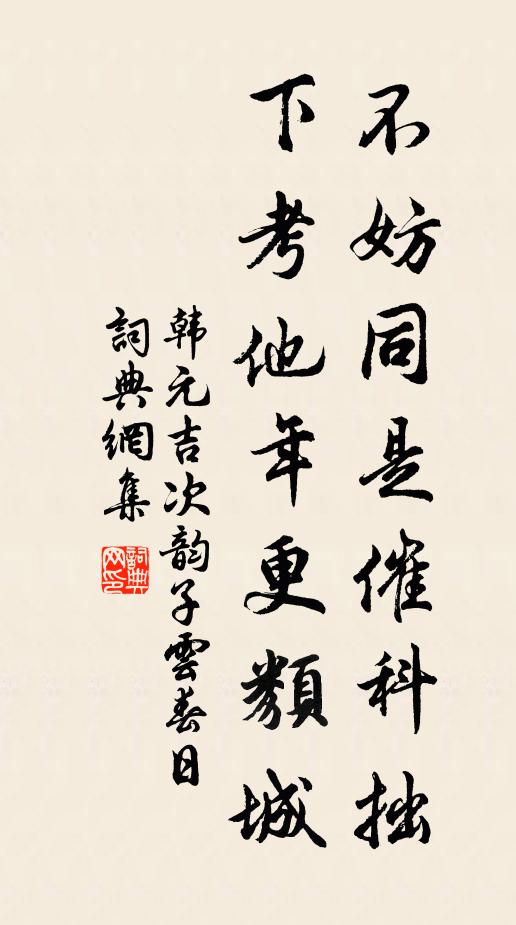 不妨同是催科拙
下考他年更類城
韩元吉次韵子雲春日
詞典網集
詞典网印